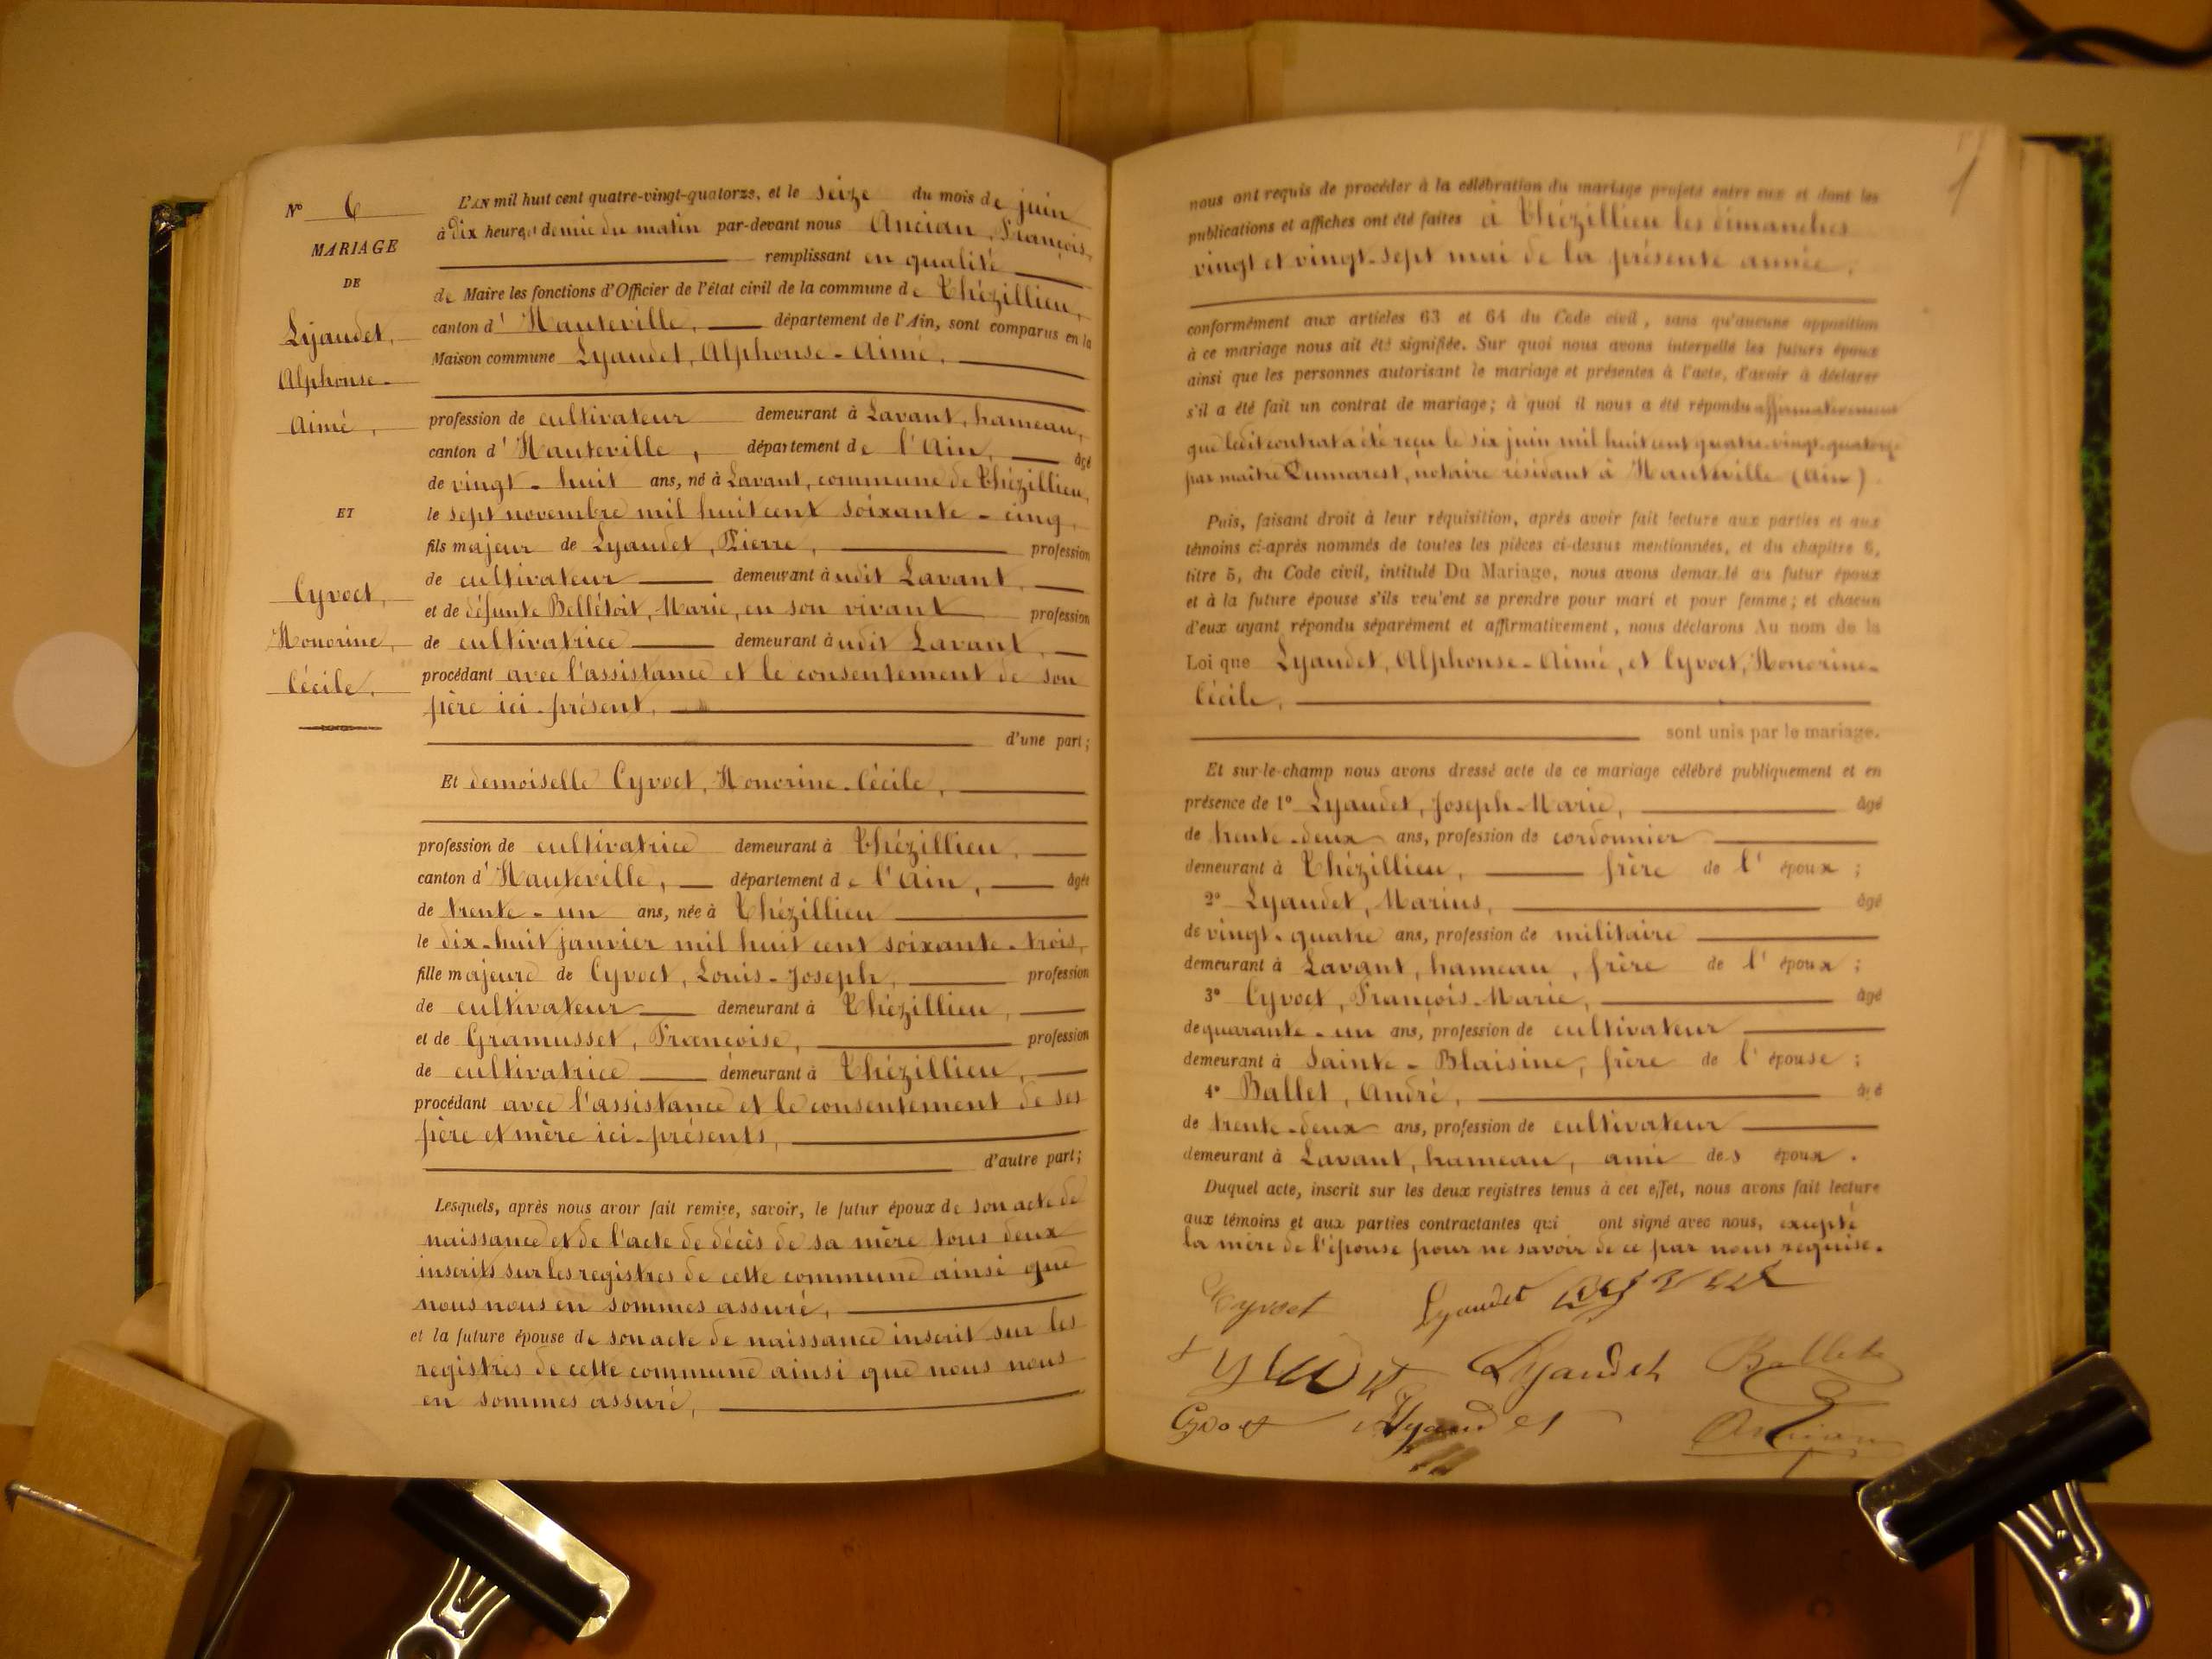 N° 6
MARIAGE
DE
Lyaudet,
Alphonse-
Aimé,
ET
Cyvoct,
Honorine,
Cécile,
L'AN mil huit cent quatre-vingt-quatorze, et le seize du mois de juin
à dix heures demie du matin par-devant nous Ancian, François,
remplissant en qualité
de Maire les fonctions d'Officier de l'état civil de la commune de Thézillieu,
canton d'Hauteville, département de l'Ain, sont comparus en la
Maison commune Lyaudet, Alphonse-Aimé,
profession de cultivateur demeurant à Lavant, hameau,
canton d'Hauteville, département de l'Ain, âgé
de vingt-huit ans, né à Lavant, commune de Thézillieu,
le sept novembre mil huit cent soixante-cinq,
fils majeur de Lyaudet, Pierre, profession
de cultivateur demeurant à udit Lavant,
et de défunte Bellétoit, Marie, en son vivant profession
de cultivatrice demeurant à udit Lavant,
procédant avec l'assistance et le consentement de son
père ici-présent,
d'une part;
Et demoiselle Cyvoct, Honorine-Cécile,
profession de cultivatrice demeurant à Thézillieu,
canton d'Hauteville, département de l'Ain, âgée
de trente-un ans, née à Thézillieu
le dix-huit janvier mil huit cent soixante-trois,
fille majeure de Cyvoct, Louis-Joseph, profession
de cultivateur demeurant à Thézillieu,
et de Gramusset, Françoise, profession
de cultivatrice demeurant à Thézillieu,
procédant avec l'assistance et le consentement de ses
père et mère ici-présents,
d'autre part;
Lesquels, après nous avoir fait remise, savoir, le futur époux de son acte de
naissance et de l'acte de décès de sa mère tous deux
inscrits sur les registres de cette commune ainsi que
nous nous en sommes assuré,
et la future épouse de son acte de naissance inscrit sur les
registres de cette commune ainsi que nous nous
en sommes assuré,
nous ont requis de procéder à la célébration du mariage projeté entre eux et dont les
publications et affiches ont été faites à Thézillieu les dimanches
vingt et vingt-sept mai de la présente année;
conformément aux articles 63 et 64 du Code civil, sans qu'aucune opposition
à ce mariage nous ait été signifiée. Sur quoi nous avons interpellé les futurs époux
ainsi que les personnes autorisant le mariage et présentes à l'acte, d'avoir à déclarer
s'il a été fait un contrat de mariage; à quoi il nous a été répondu affirmativement
que ledit contrat a été reçu le six juin mil huit cent quatre-vingt-quatorze
par maître Dumarest, notaire résidant à Hauteville (Ain)
Puis, faisant droit à leur réquisition, après avoir fait lecture aux parties et aux
témoins ci-après nommés de toutes les pièces ci-dessus mentionnées, et du chapitre 6,
titre 5, du Code civil, intitulé Du Mariage, nous avons demandé au futur époux
et à la future épouse s'ils veulent se prendre pour mari et pour femme; et chacun
d'eux ayant répondu séparément et affirmativement, nous déclarons Au nom de la
Loi que Lyaudet, Alphonse-Aimé, et Cyvoct, Honorine-
Cécile,
sont unis par le mariage.
Et sur-le-champ nous avons dressé acte de ce mariage célébré publiquement et en
présence de 1° Lyaudet, Joseph-Marie, âgé
de trente-deux ans, profession de cordonnier
demeurant à Thézillieu, frère de l'époux;
2° Lyaudet, Marius, âgé
de vingt-quatre ans, profession de militaire
demeurant à Lavant, hameau, frère de l'époux;
3° Cyvoct, François-Marie, âgé
de quarante-un ans, profession de cultivateur
demeurant à Sainte-Blaisine, frère de l'épouse;
4° Ballet, André, âgé
de trente-deux ans, profession de cultivateur
demeurant à Lavant, hameau, ami des époux.
Duquel acte, inscrit sur les deux registres tenus à cet effet, nous avons fait lecture
aux témoins et aux parties contractantes qui ont signé avec nous, excepté
la mère de l'épouse pour ne savoir de ce par nous requise.
Cyvoct Lyaudet
Lyaudet Ballet
Cyvoct Lyaudet Ancian